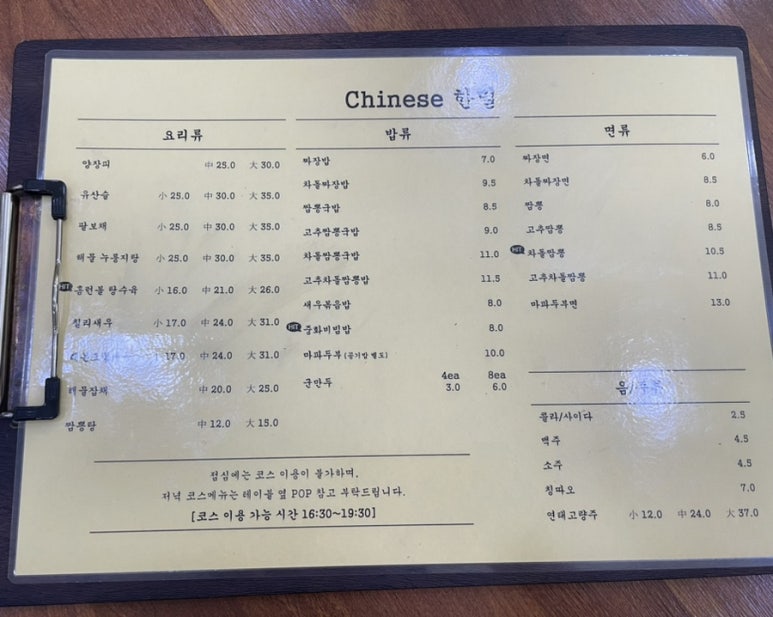 Chinese 한
요리류
양장피 中 25.0 大 30.0
유산슬 小 25.0 中 30.0 大 35.0
팔보채 小 25.0 中 30.0 大 35.0
해물 누룽지탕 小 25.0 中 30.0 大 35.0
HIT 홍련볼 탕수육 小 16.0 中 21.0 大 26.0
칠리새우 小 17.0 中 24.0 大 31.0
17.0 中 24.0 大 31.0
해물잡채 中 20.0 大 25.0
짬뽕탕 中 12.0 大 15.0
밥류
짜장밥 7.0
차돌짜장밥 9.5
짬뽕국밥 8.5
고추짬뽕국밥 9.0
차돌짬뽕국밥 11.0
고추차돌짬뽕밥 11.5
새우볶음밥 8.0
HIT 중화비빔밥 8.0
마파두부 (공기밥 별도) 10.0
4ea 8ea
군만두 3.0 6.0
면류
짜장면 6.0
차돌짜장면 8.5
짬뽕 8.0
고추짬뽕 8.5
HIT 차돌짬뽕 10.5
고추차돌짬뽕 11.0
마파두부면 13.0
음/주류
콜라/사이다 2.5
맥주 4.5
소주 4.5
칭따오 7.0
연태고량주 小 12.0 中 24.0 大 37.0
점심에는 코스 이용이 불가하며,
저녁 코스메뉴는 테이블 옆 POP 참고 부탁드립니다.
[코스 이용 가능 시간 16:30~19:30]